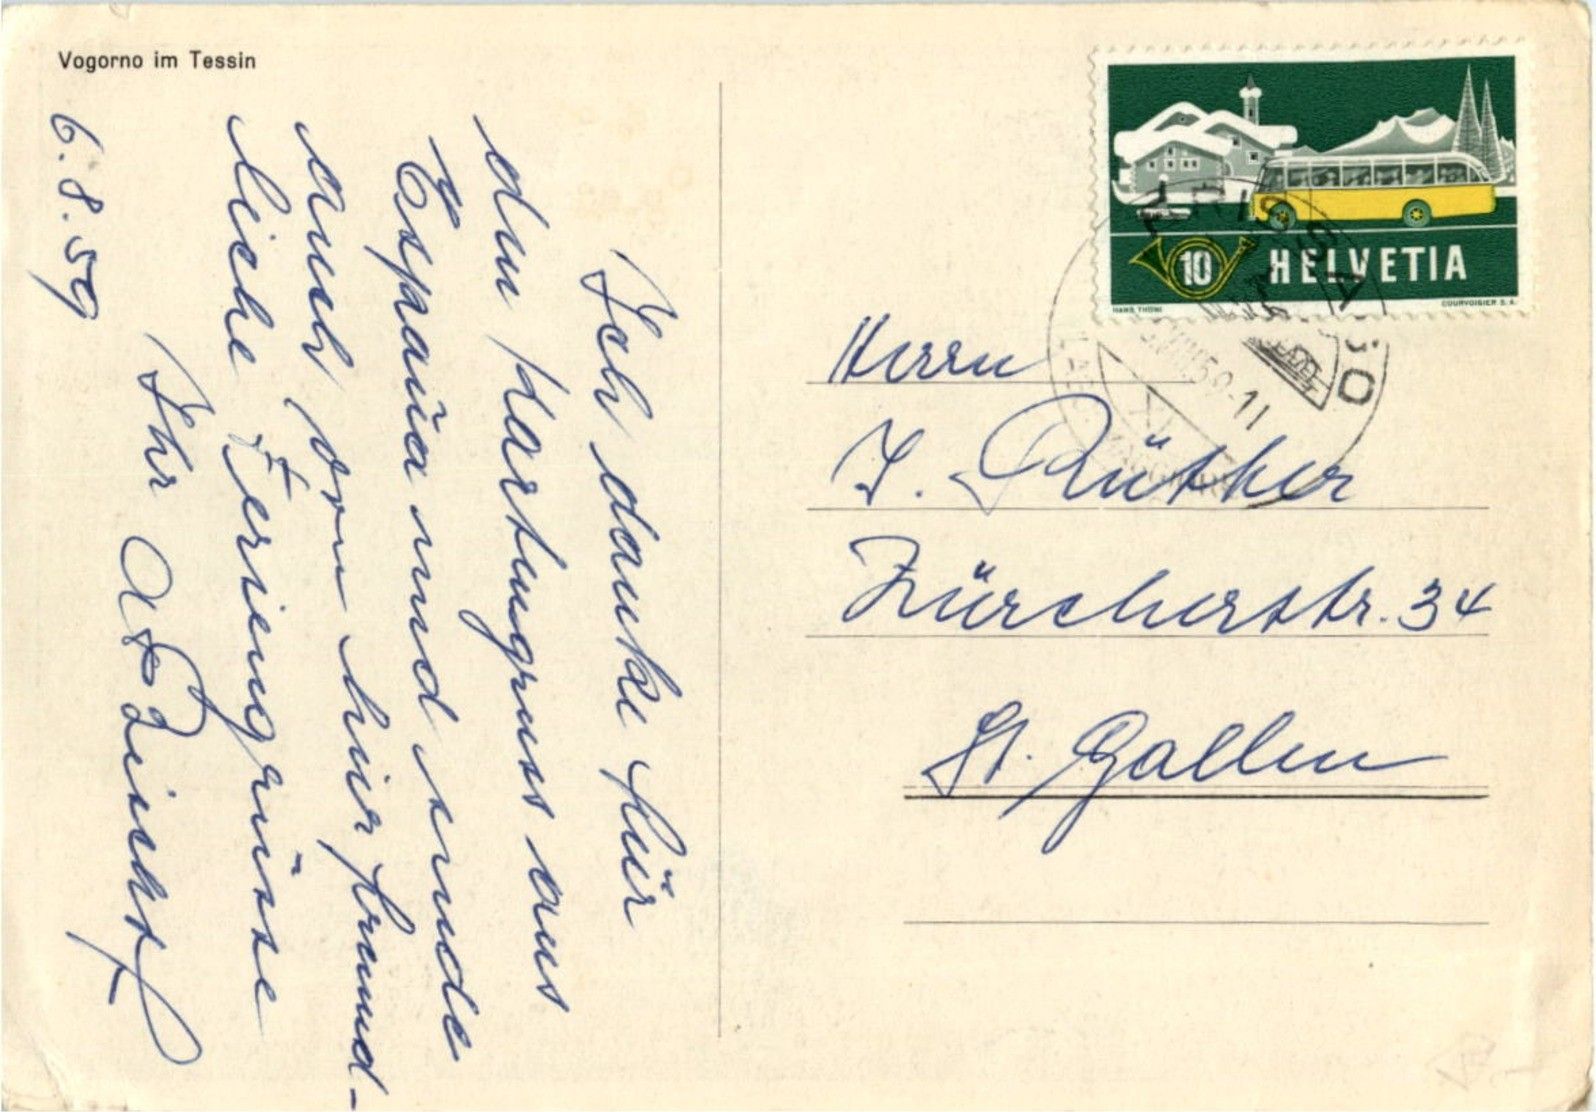 Vogorno im Tessin
Ich danke für
den Kartengruss aus
España und sende
auch von hier freund-
liche Feriengrüsse
Ihr
6.8.59
HELVETIA
10
HANS THÖNI
COURVOISIER S.A.
Herrn
J. Rüther
Zürcherstr. 34
St. Gallen